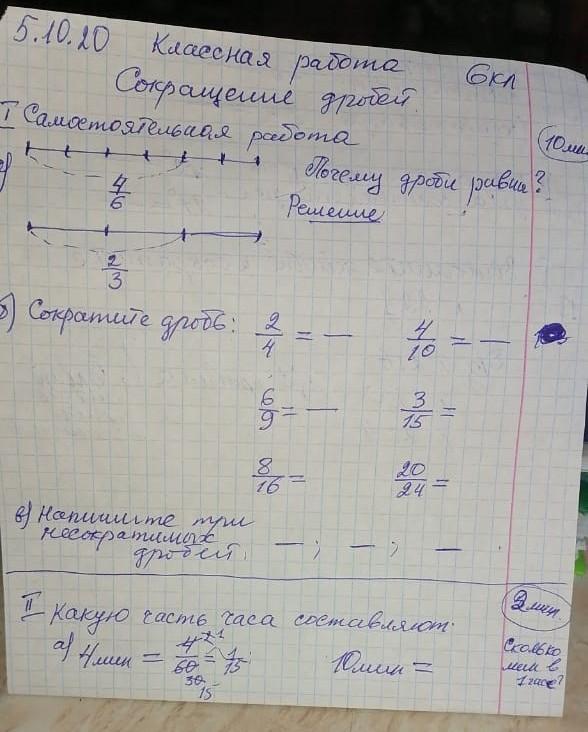 5.10.20 Классная работа 6кл
Сокращение дробей.
I Самостоятельная работа
10мин
а) Почему дроби равны?
4/6
Решение
2/3
б) Сократите дробь: 2/4 = — 4/10 = —
6/9 = — 3/15 =
8/16 = 20/24 =
в) Напишите три
несократимых
дробей. — ; — ; — .
II Какую часть часа составляют:
2мин.
а) 4мин = 4/60 = 1/15 10мин =
2 1
30
15
Сколько
мин в
1 часе?